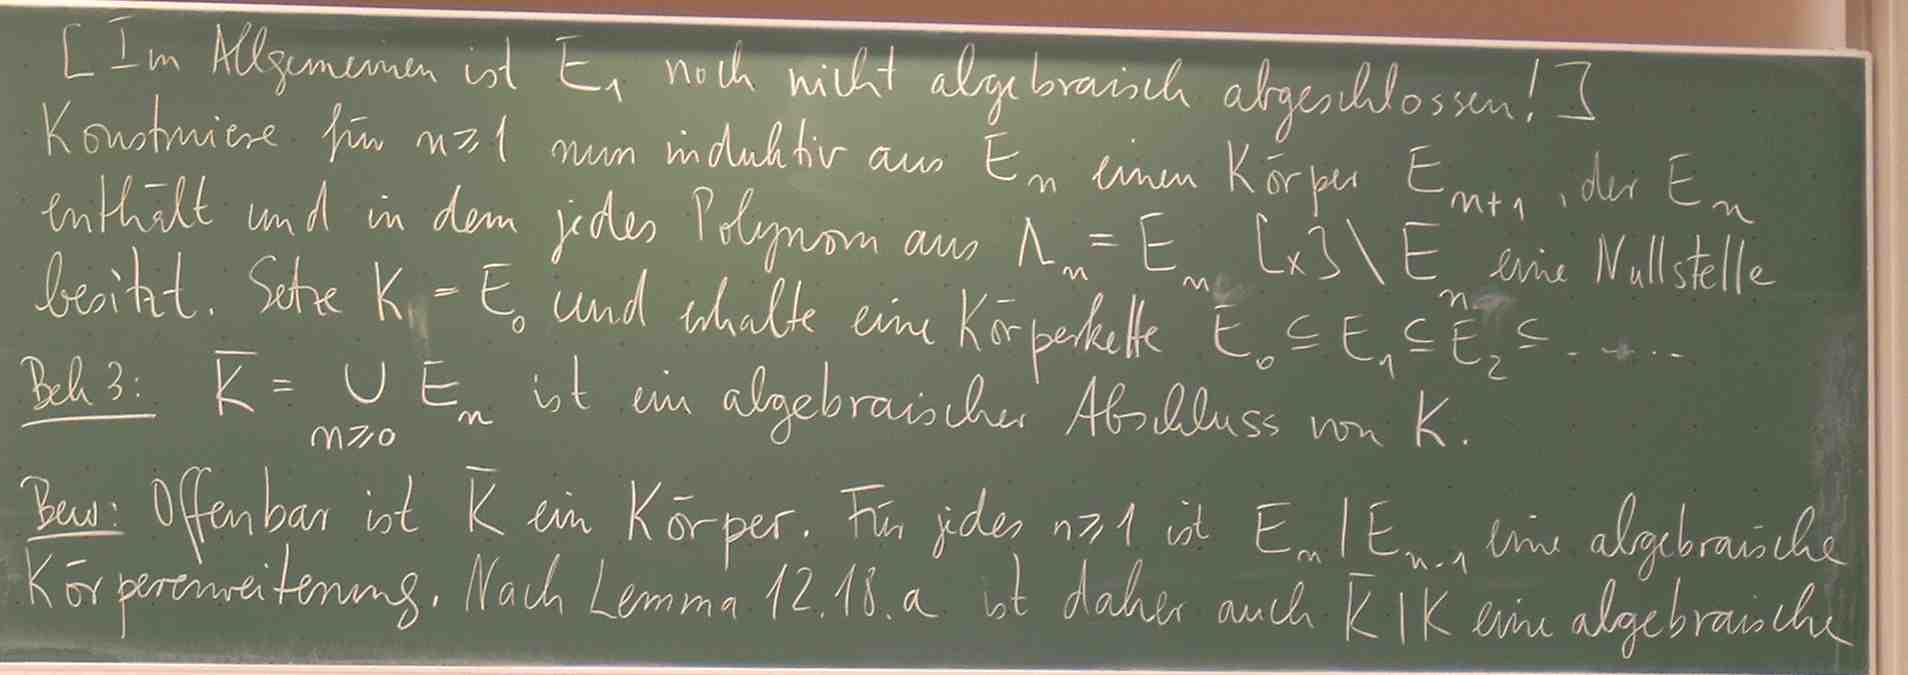 [Im Allgemeinen ist E₁ noch nicht algebraisch abgeschlossen!]
Konstruiere für n≥1 nun induktiv aus Eₙ einen Körper Eₙ₊₁, der Eₙ
enthält und in dem jedes Polynom aus Λₙ = Eₙ[x]\Eₙ eine Nullstelle
besitzt. Setze K = E₀ und erhalte eine Körperkette E₀ ⊆ E₁ ⊆ E₂ ⊆ .....
Beh 3: K̅ = ∪ Eₙ ist ein algebraischer Abschluss von K.
n≥0
Bew: Offenbar ist K̅ ein Körper. Für jedes n≥1 ist Eₙ|Eₙ₋₁ eine algebraische
Körpererweiterung. Nach Lemma 12.18.a ist daher auch K̅|K eine algebraische